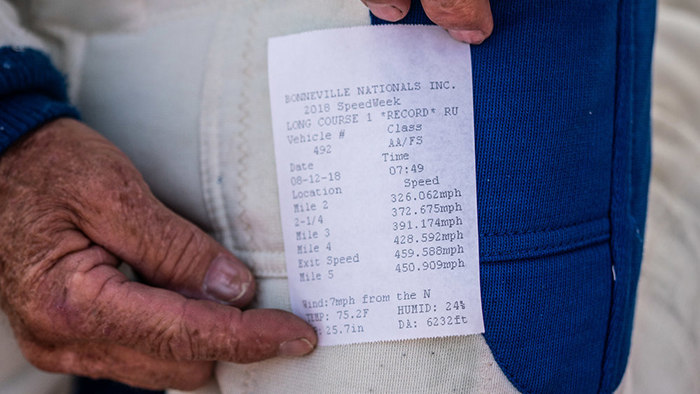 BONNEVILLE NATIONALS INC.
2018 SpeedWeek
LONG COURSE 1 *RECORD* RU
Vehicle # Class
492 AA/FS
Date Time
08-12-18 07:49
Location Speed
Mile 2 326.062mph
2-1/4 372.675mph
Mile 3 391.174mph
Mile 4 428.592mph
Exit Speed 459.588mph
Mile 5 450.909mph
Wind:7mph from the N
TEMP: 75.2F HUMID: 24%
25.7in DA: 6232ft